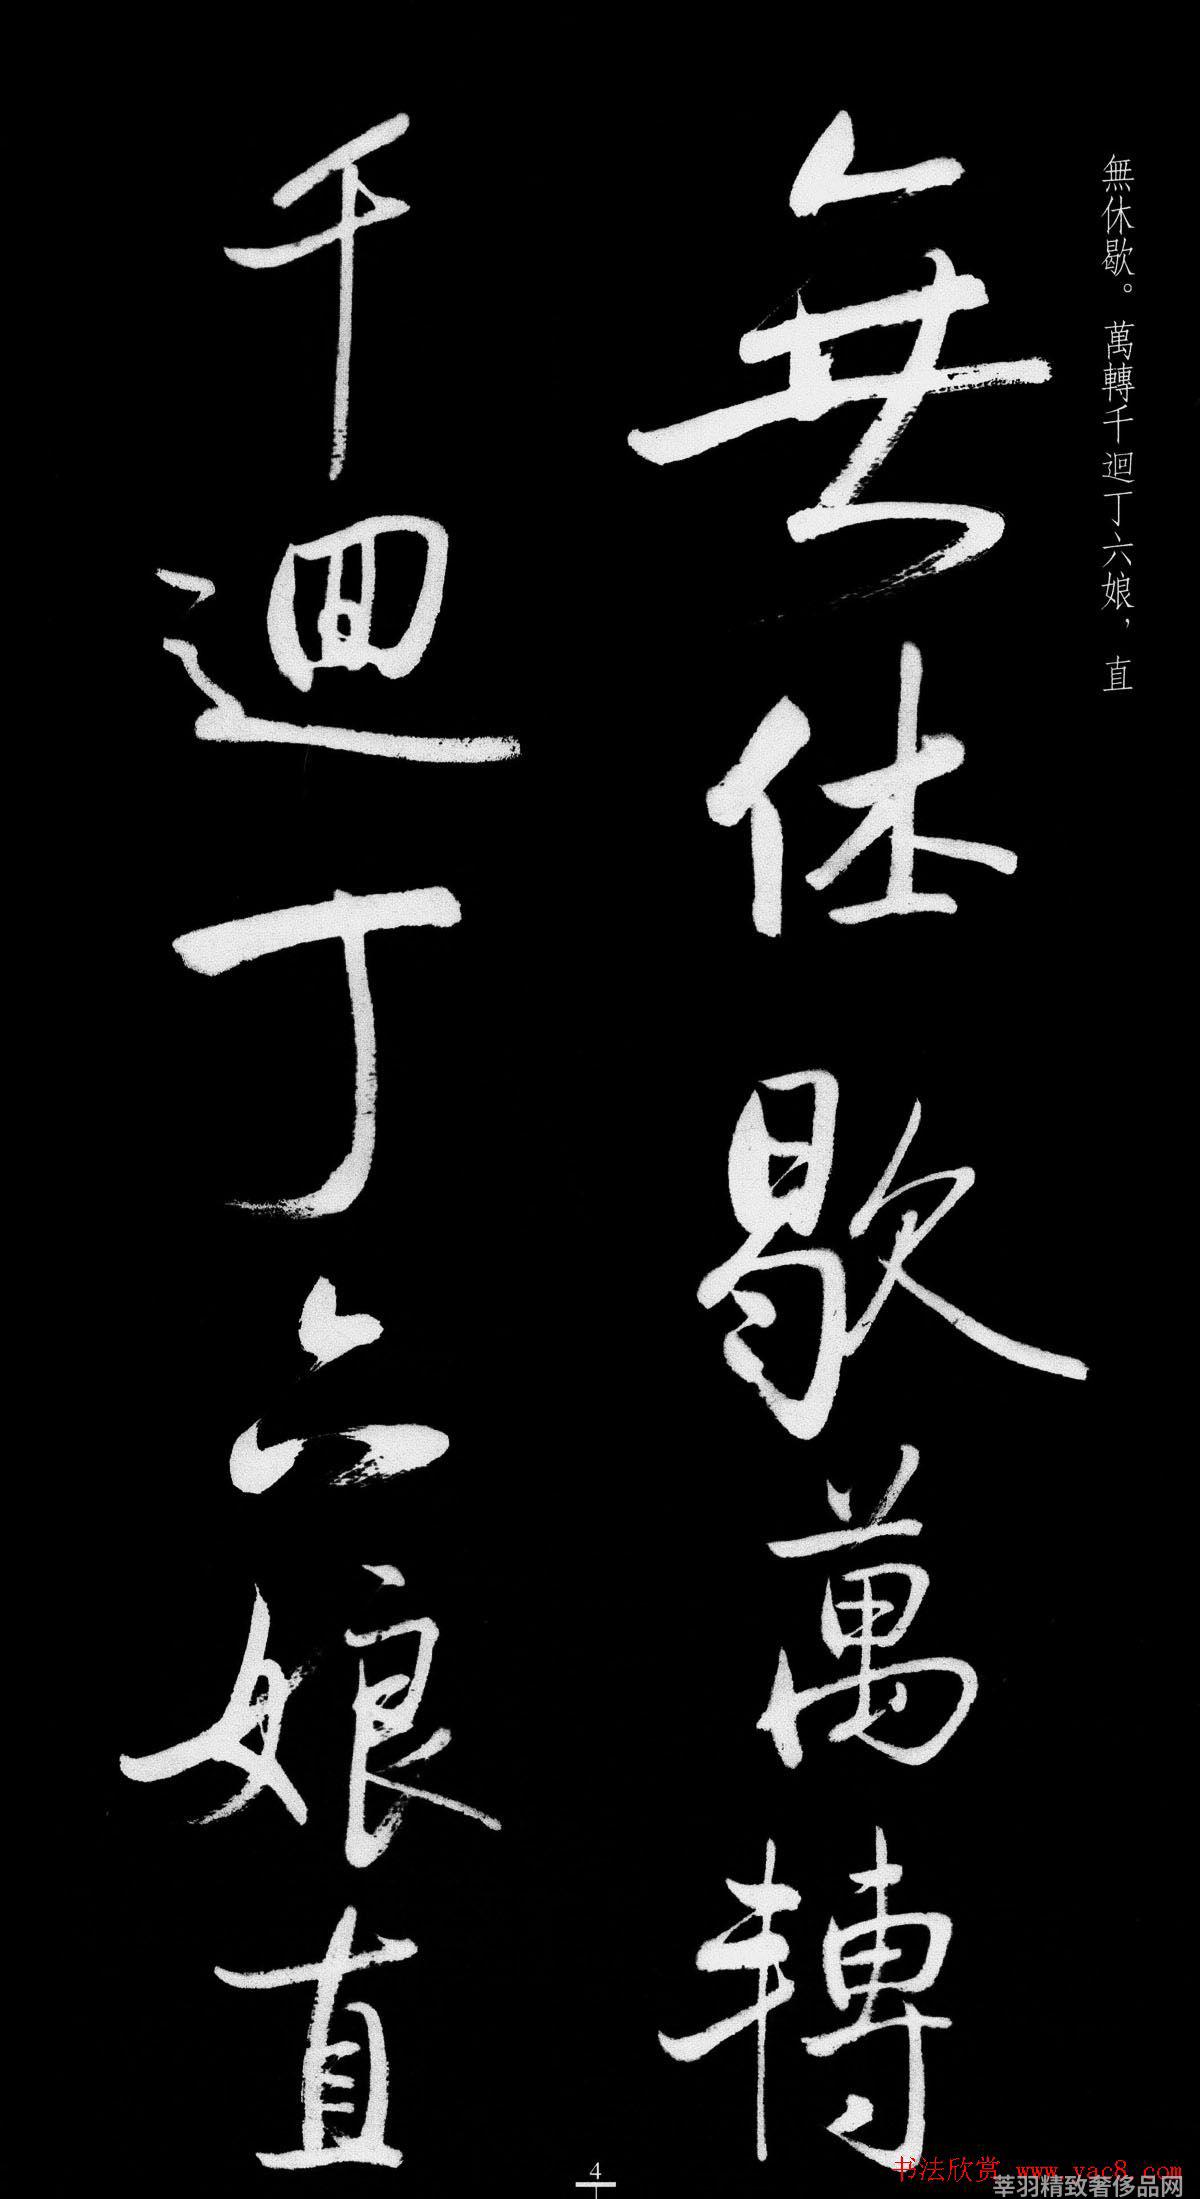 無休歇。萬轉千迴丁六娘，直
無休歇萬轉
千迴丁六娘直
4
书法欣赏 www.yac8.com
莘羽精致奢侈品网